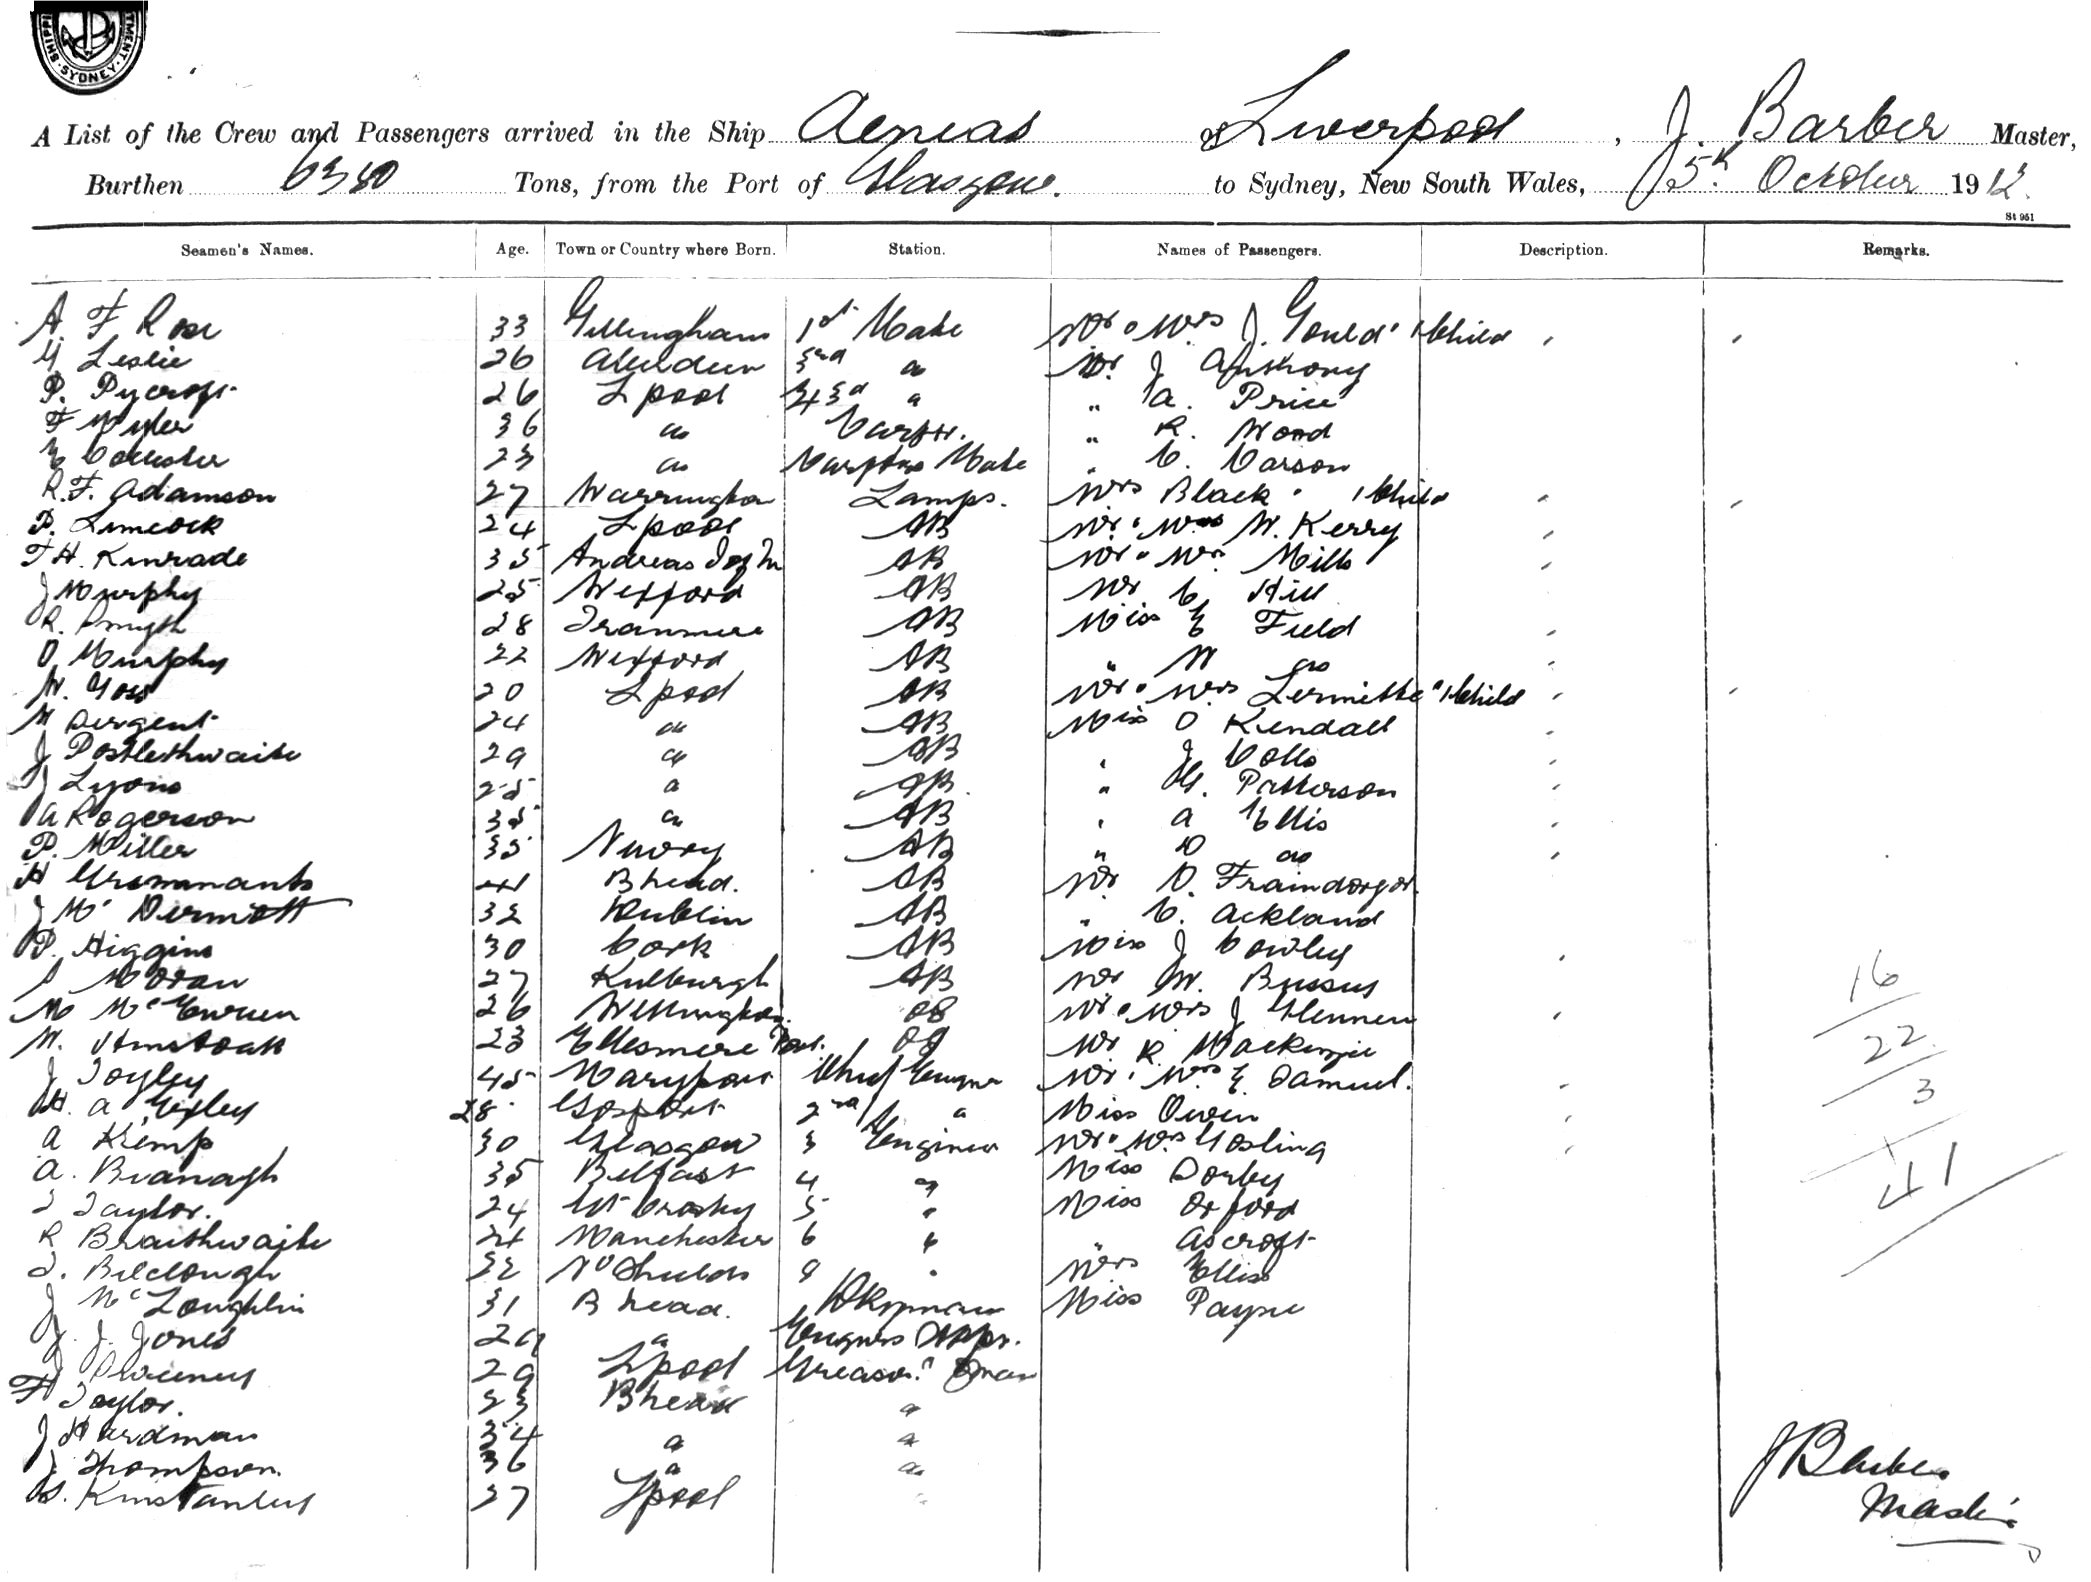 SHIPPING SYDNEY
A List of the Crew and Passengers arrived in the Ship Aeneas of Liverpool, J. Barber Master,
Burthen Tons, from the Port of Glasgow. to Sydney, New South Wales, 5th October 1912.
St 951
Seamen's Names. Age. Town or Country where Born. Station. Names of Passengers. Description. Remarks.
A. F Rose 33 Gillingham 1st Mate Mr & Mrs J. Gould & 1 Child
G Leslie 26 Aberdeen 2nd " Mr. J Anthony
P. Pycroft 26 Lpool 3rd " " A. Price
F Myler 36 " Carptr. " R. Wood
E Collister 23 " Carptrs Mate " C. Carson
R. F. Adamson 27 Warrington Lamps. Mrs Black & 1 Child
P. Limcock 24 Lpool AB Mr & Mrs W. Kerry
T H. Kinrade 35 Andreas I of M AB Mr & Mrs Mills
J Murphy 25 Wexford AB Mr C Hill
R. Smyth 28 Tranmere AB Miss E Field
O Murphy 22 Wexford AB " W do
W. Goss 20 Lpool AB Mr & Mrs Lermitte & 1 Child
Sergent 24 " AB Miss O Kendall
J Postlethwaite 29 " AB " J Colls
J Lyons 25 " AB " G. Patterson
A Rogerson 35 " AB " A Ellis
P. Miller 35 Newry AB " D do
H 41 Bhead. AB Mr D.
J McDermott 32 Dublin AB " C. Ackland
P. Higgins 30 Cork AB Miss J Cowley
Moran 27 AB Mr W.
M McEwen 26 Wellington OS Mr & Mrs J Glennen
W. 23 Ellesmere Port. OS Mr R Mackenzie
J 45 Maryport Chief Engnr Mr & Mrs E Samuel.
H. A Exley 28 Gosport 2nd " Miss Owen
A Kemp 30 Glasgow 3 Engineer Mr & Mrs Gosling
A. 35 Belfast 4 " Miss Dorby
Taylor. 24 Gt Crosby 5 " Miss Orford
R Braithwaite 24 Manchester 6 " " Ascroft
Bilclough 32 No Shields " Mrs Ellis
J McLoughlin 31 Bhead. Dkyman Miss Payne
J. J. Jones " Engnrs
29 Lpool Greaser &
F Taylor. 23 Bhead "
J Hardman 34 " "
J Thompson. 36 " "
27 Lpool
16
22
3
41
J Barber
Master